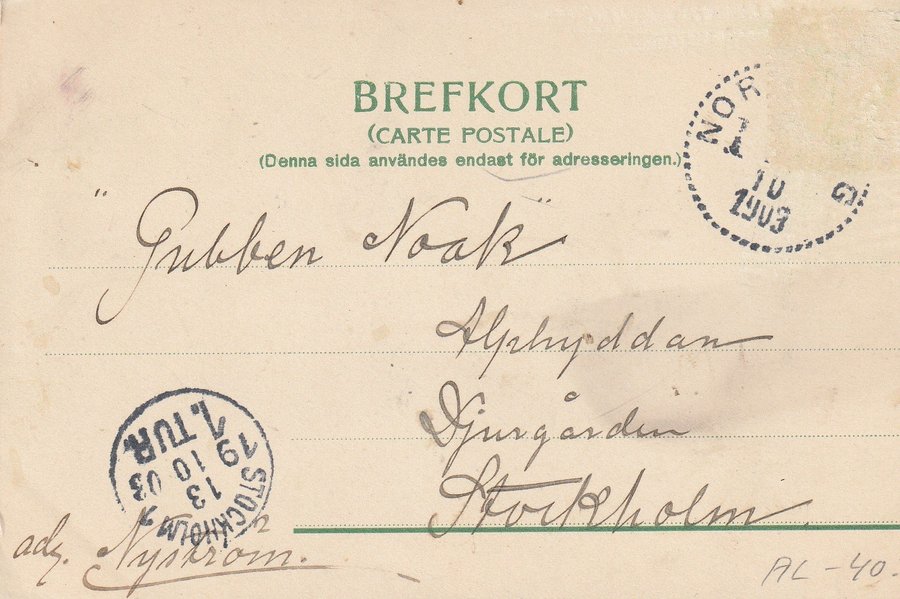 BREFKORT
(CARTE POSTALE)
(Denna sida användes endast för adresseringen.)
NOR
1
10
1903
"Gubben Noak"
Alphyddan
Djurgården
Stockholm.
STOCKHOLM 1
1. TUR.
19 10 03
13
adr. Nyström.
AL-40.